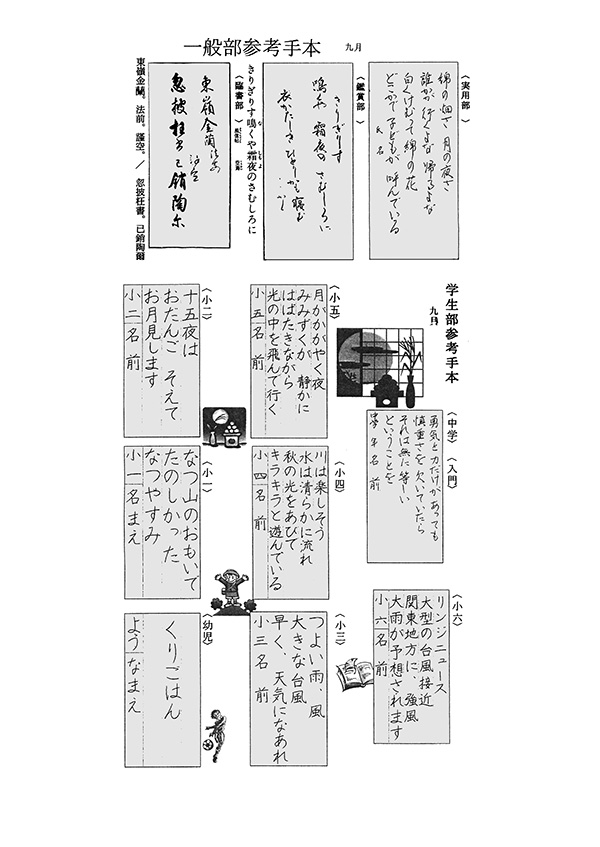 一般部参考手本 九月
〈実用部〉
綿の畑さ 月の夜さ
誰か行くよな 帰るよな
白くけむつて 綿の花
どこかで子どもが 呼んでいる
氏名
〈鑑賞部〉
きりぎりす
鳴くや 霜夜の さむしろに
きりぎりす鳴くや霜夜のさむしろに
な
しもよ
〈臨書部〉
東嶺金蘭法前
謹空
忽披枉書已銷陶尓
東嶺金蘭。法前。謹空。／ 忽披枉書。已銷陶爾
学生部参考手本
九月
〈中学〉 〈入門〉
勇気と力だけがあっても
慎重さを欠いていたら
それは無に等しい
ということを
学年 名前
〈小六〉
リンジニュース
大型の台風接近
関東地方に、強風
大雨が予想されます
小六 名前
〈小五〉
月がかがやく夜
みみずくが 静かに
はばたきながら
光の中を飛んで行く
小五 名前
〈小四〉
川は楽しそう
水は清らかに流れ
秋の光をあびて
キラキラと遊んでいる
小四 名前
〈小三〉
つよい雨、風
大きな台風
早く、天気になあれ
小三 名前
〈小二〉
十五夜は
おだんご そえて
お月見します
小二 名前
〈小一〉
なつ山のおもいで
たのしかった
なつやすみ
小一 名まえ
〈幼児〉
くりごはん
よう なまえ